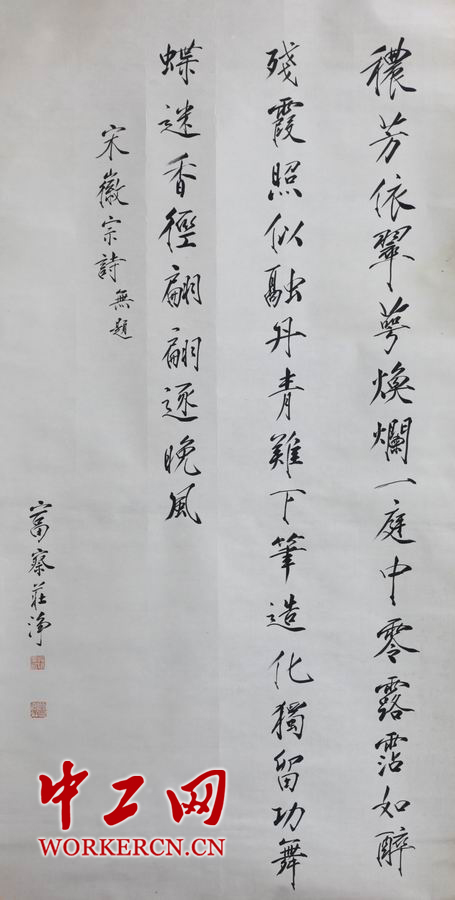 穠芳依翠萼煥爛一庭中零露霑如醉
殘霞照似融丹青難下筆造化獨留功舞
蝶迷香徑翩翩逐晚風
宋徽宗詩無題
富察莊淨
中工网
WORKERCN.CN